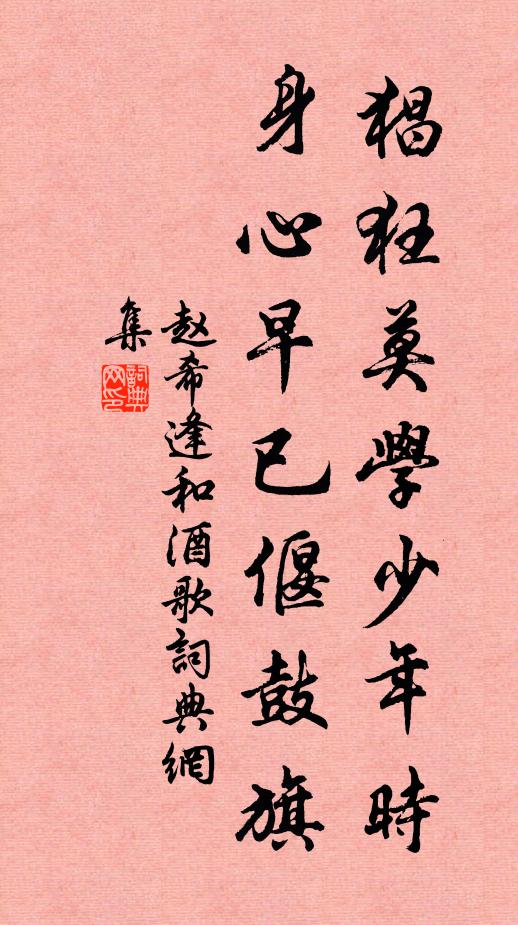 猖狂莫學少年時
身心早已偃鼓旗
赵希逢和酒歌詞典網
集
詞典
网印